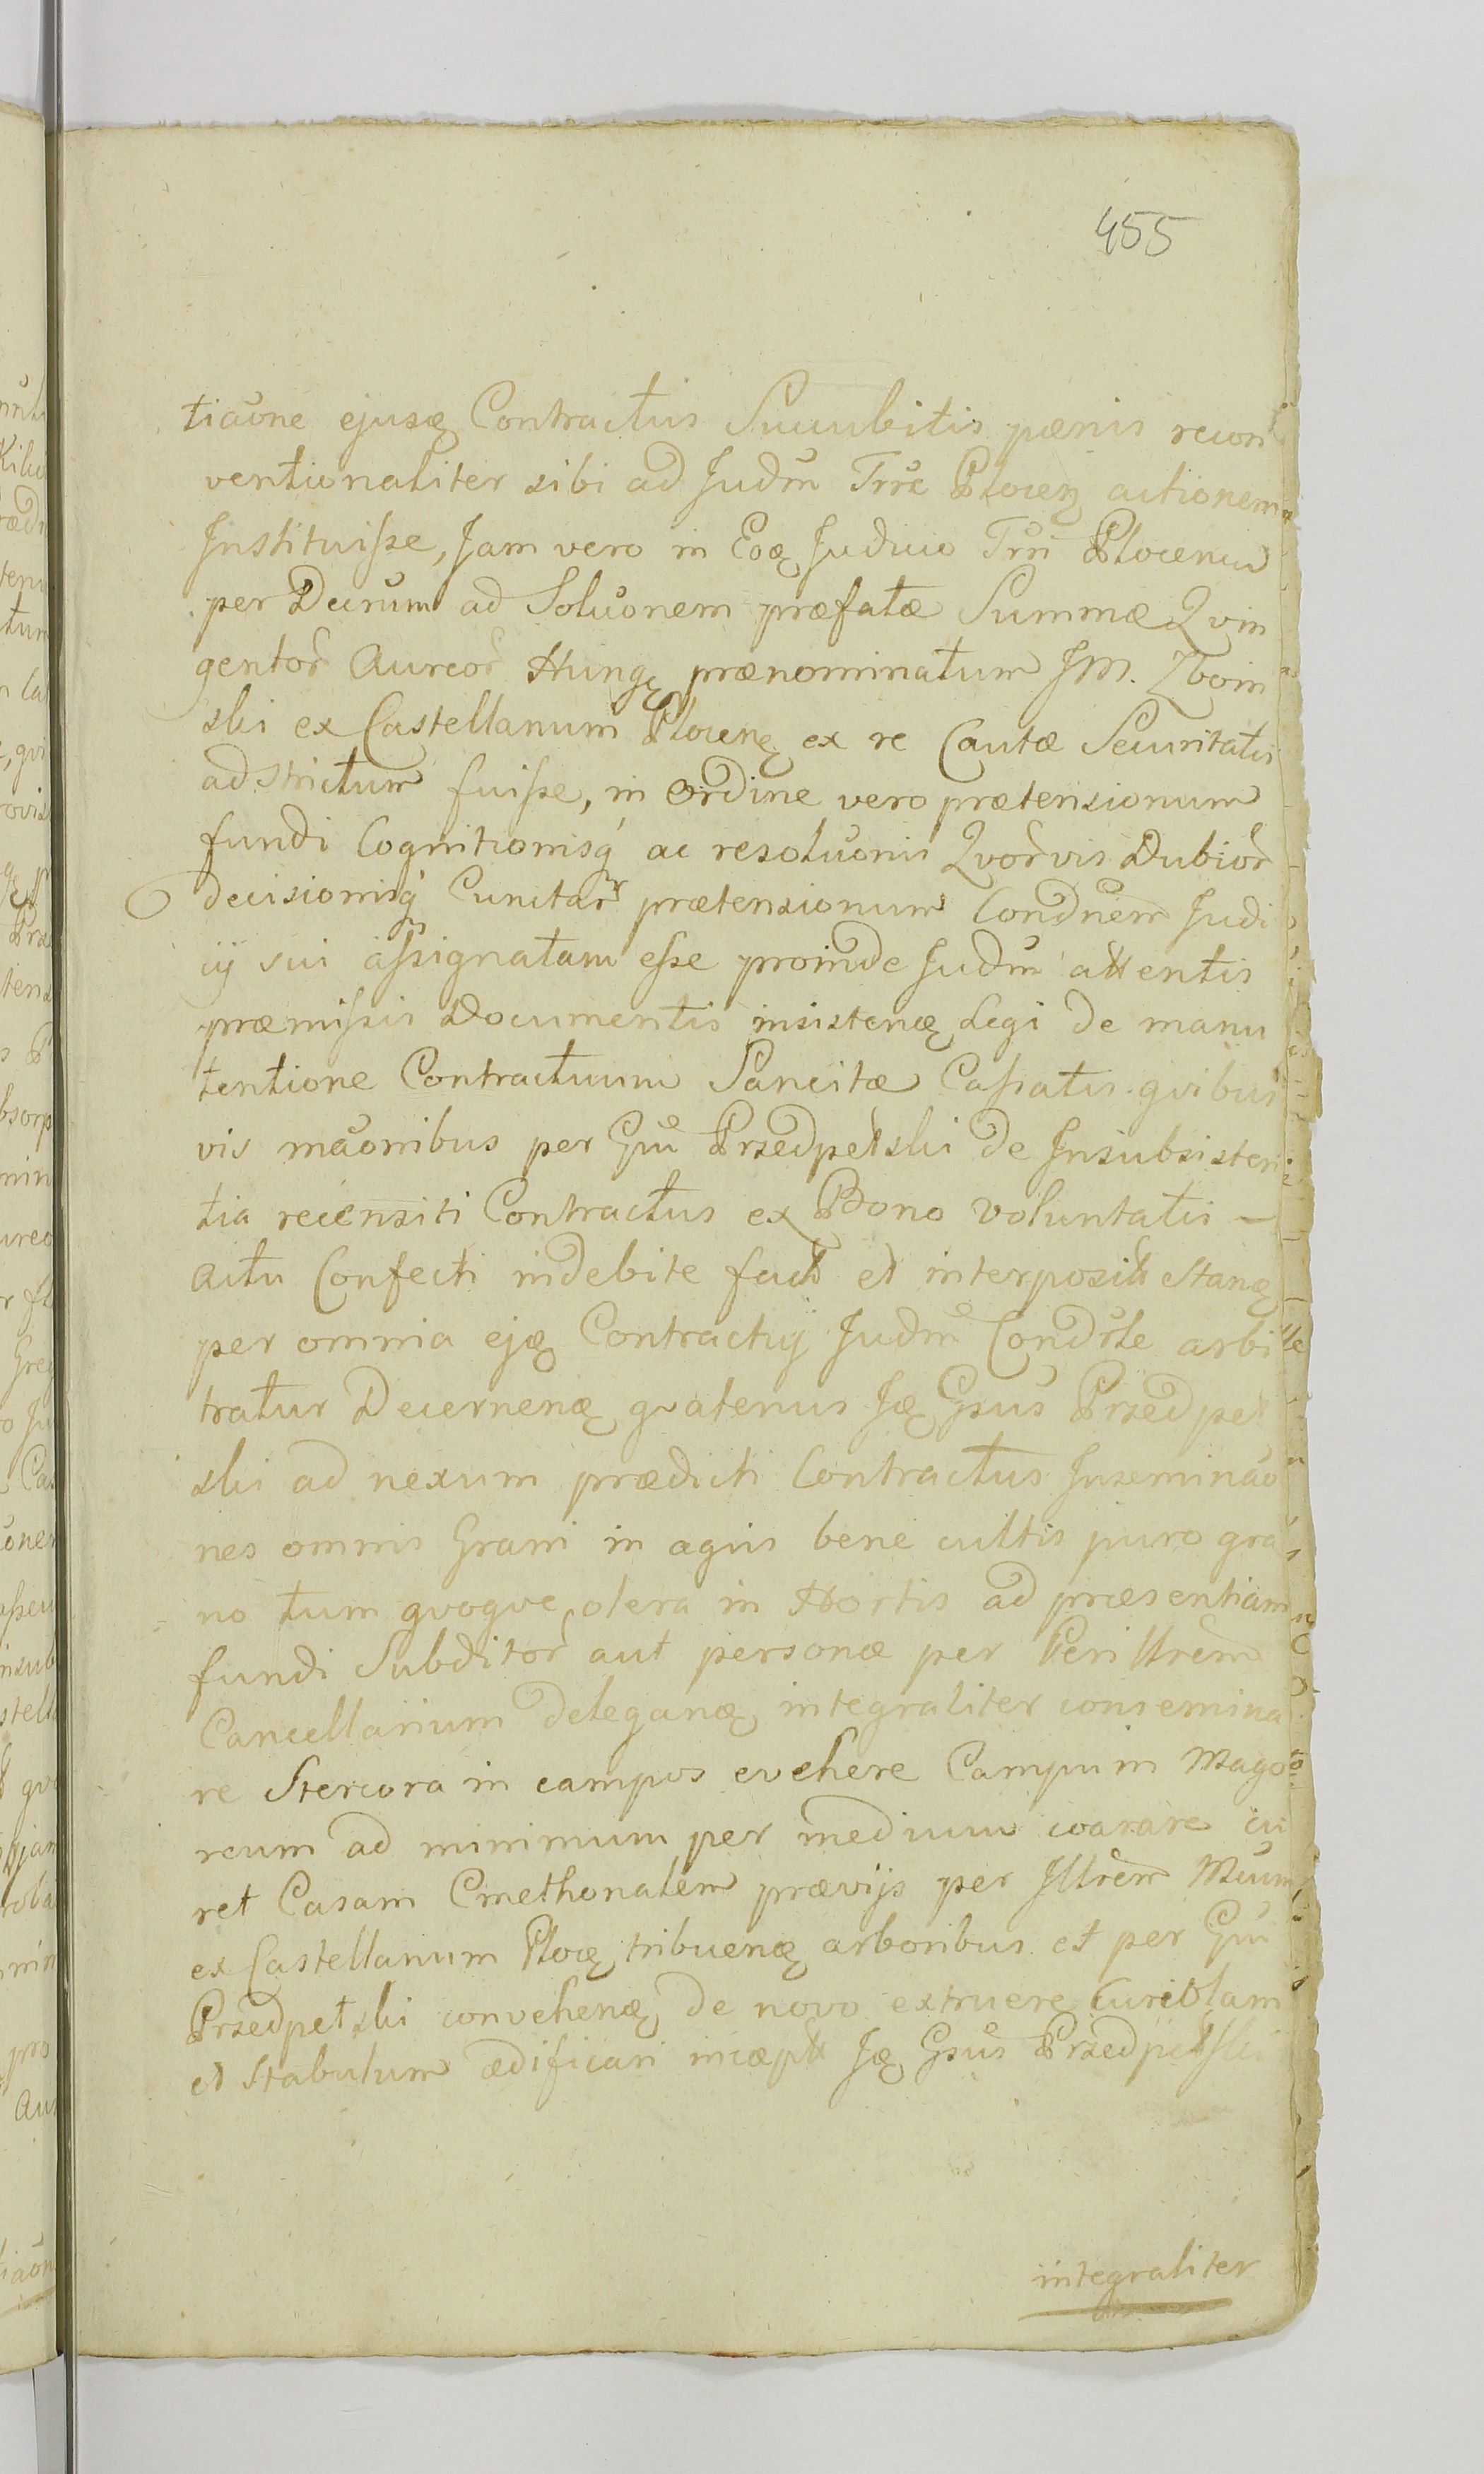 455
tiaōne ejusq Contractus Succubitis pœnis recon
ventionaliter sibi ad Judm̄ Trrē Plocen actionem
Instituisse, Jam vero in Eoq Judicio Trri Plocensi
per Decrum ad Soluōnem præfatæ Summæ Qvin
gentor̄ Aureor̄ Hung prænominatum JM. Zboin
ski ex Castellanum Plocen ex re Cautæ Securitatis
adstrictum fuisse, in ordine vero prætensionum
fundi Cognitionisq́ ac resoluōnis Qvor̄vis Dubior̄
decisionisq́ Cunctar̄ prætensionum Condnēm Judi
cij sui assignatam esse proinde Judm̄ attentis
præmissis Documentis insistenq Legi de manu
tentione Contractuum Sancitæ Cassatis qvibus
vis māonibus per Gm̄ Przedpełski de Insubsisten
tia recensiti Contractus ex Bono voluntatis –
actu Confecti indebite fact et interposit Stanq
per omnia ejq Contractuj Judm̄ Condrle arbi
tratur Decernenq qvatenus Jq Gsūs Przedpeł
ski ad nexum prædicti Contractus Inseminaō
nes omnis Grani in agris bene cultis puro gra
no tum qvoqve olera in Hortis ad præsentiam
fundi Subditor̄ aut personæ per Perillrēm
Cancellarium deleganq integraliter consemina
re Stercora in campos evehere Campum Mago
rcum ad minimum per medium coarare cu
ret Casam Cmethonalem prævijs per Illrēm Mcum
ex Castellanum Plocq tribuenq arboribus et per Gm̄
Przedpełski convehenq de novo extruere Curiolam
et Stabulum ædificari incæpt Jq Gsūs Przedpełski
integraliter